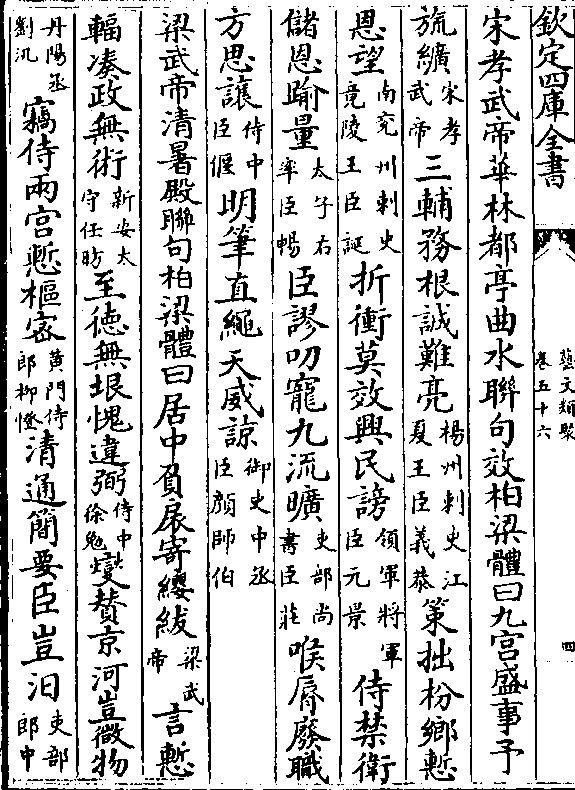 欽定四庫全書
藝文類聚
卷五十六
四
宋孝武帝華林都亭曲水聯句效柏梁體曰九宮盛事予
旒纊宋孝武帝三輔務根誠難亮楊州刺史江夏王臣義恭策拙枌鄉慙
恩望南兖州刺史竟陵王臣誕折衝莫效興民謗領軍將軍臣元景侍禁衛
儲恩踰量太子右率臣暢臣謬叨寵九流曠吏部尚書臣莊喉脣廢職
方思讓侍中臣偃明筆直繩天威諒御史中丞臣顏師伯
梁武帝清暑殿聯句柏梁體曰居中負扆寄纓紱梁武帝言慙
輻湊政無術新安太守任昉至德無垠愧違弼侍中徐勉燮贊京河豈微物
丹陽丞劉汎竊侍兩宮慙樞密黃門侍郎柳憕清通簡要臣豈汨吏部郎中